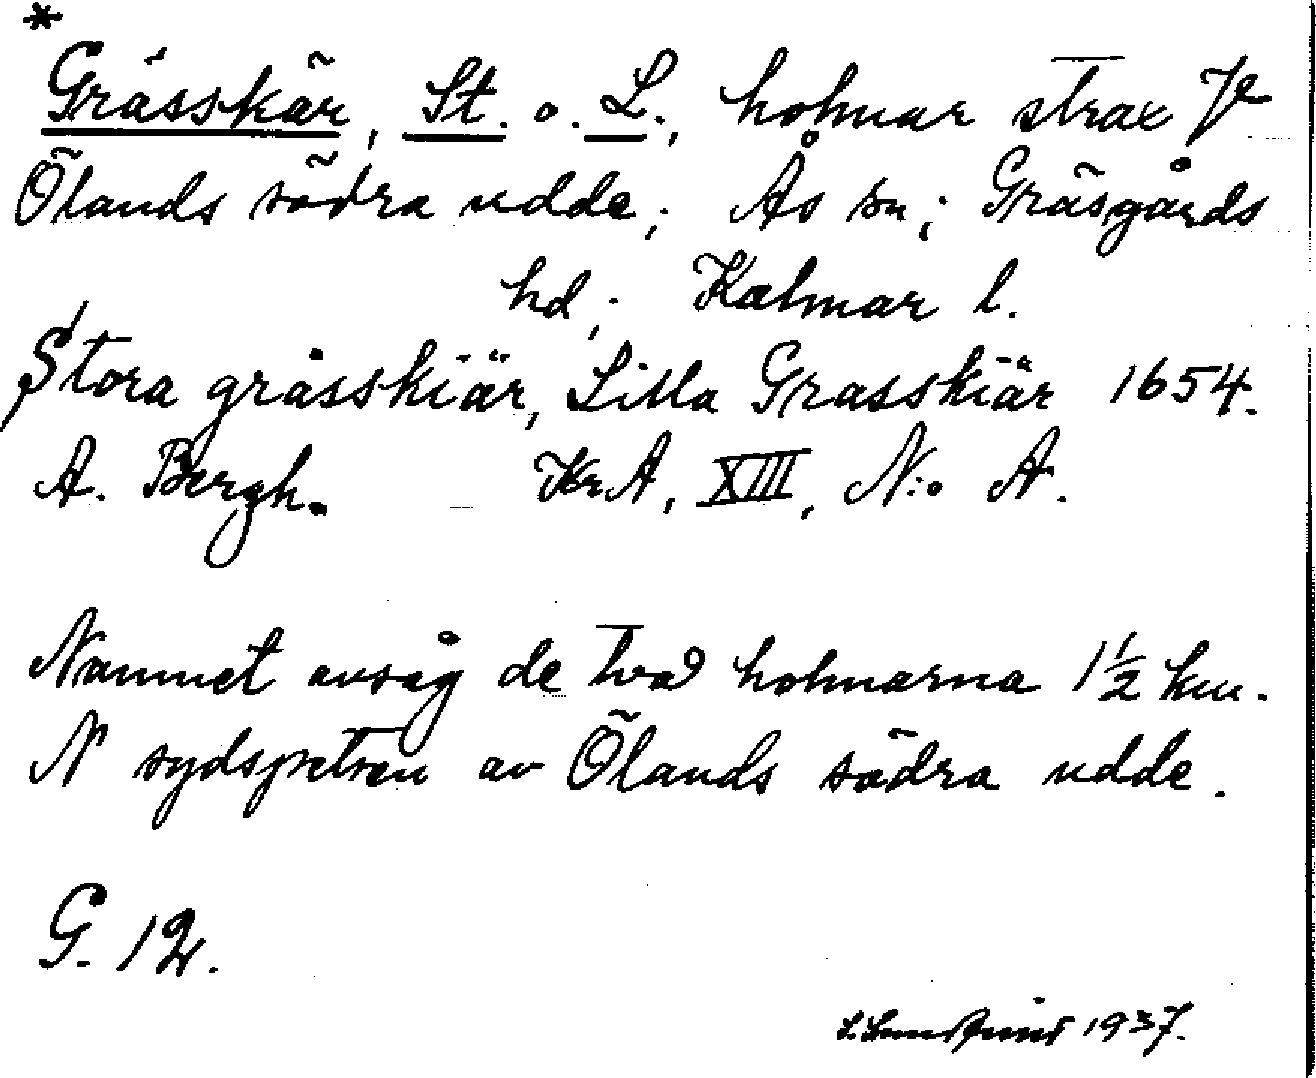 *
Grässkär, St. o. L., holmar strax
Ölands södra udde; Ås sn; Gräsgårds
hd; Kalmar l.
Stora grässkiär, Lilla Grasskiär 1654.
A. Bergh. KrA, XIII, N:o A.
Namnet avsåg de två holmarna 1½ km.
N sydspetsen av Ölands södra udde.
G. 12.
1937.